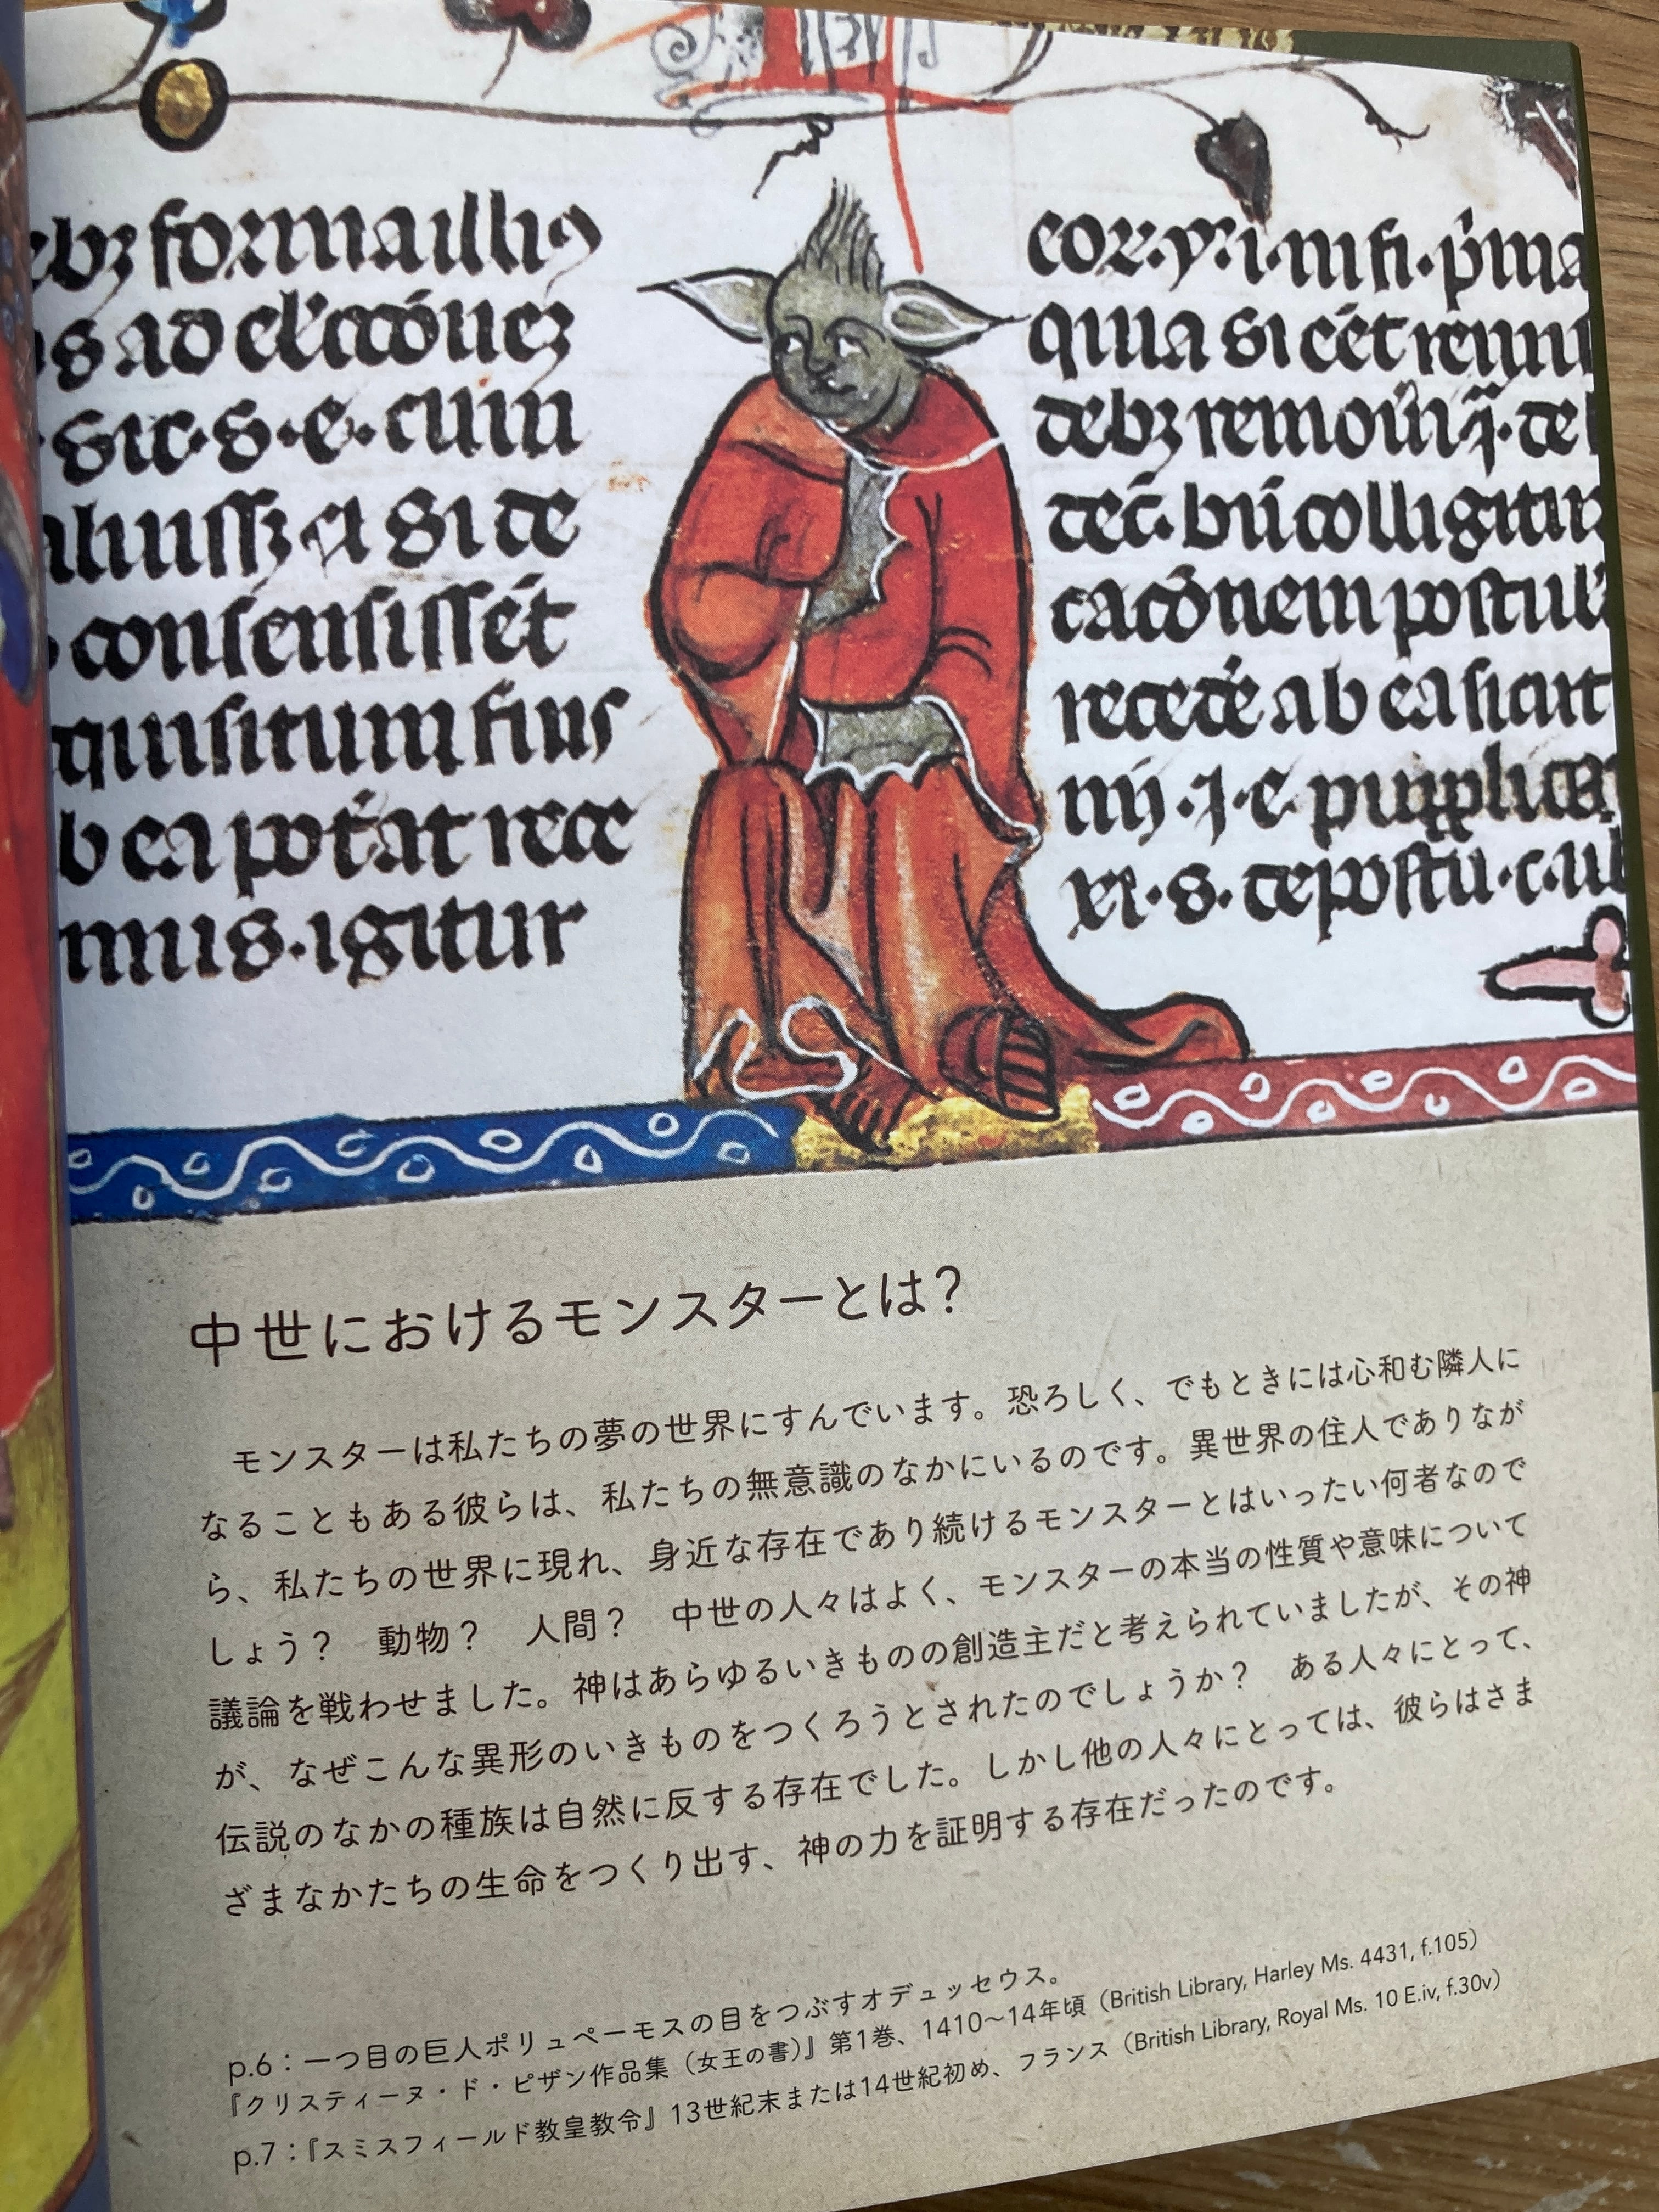 formaillis
ad
sic.s.e.cum
si de
consensisset
quisitum
b ea potat rece
mus.igitur
quia si
debz
colligitur
ab ea sicut
中世におけるモンスターとは?
モンスターは私たちの夢の世界にすんでいます。恐ろしく、でもときには心和む隣人に
なることもある彼らは、私たちの無意識のなかにいるのです。異世界の住人でありなが
ら、私たちの世界に現れ、身近な存在であり続けるモンスターとはいったい何者なので
しょう? 動物? 人間? 中世の人々はよく、モンスターの本当の性質や意味について
議論を戦わせました。神はあらゆるいきものの創造主だと考えられていましたが、その神
が、なぜこんな異形のいきものをつくろうとされたのでしょうか? ある人々にとって、
伝説のなかの種族は自然に反する存在でした。しかし他の人々にとっては、彼らはさま
ざまなかたちの生命をつくり出す、神の力を証明する存在だったのです。
p.6:一つ目の巨人ポリュペーモスの目をつぶすオデュッセウス。
『クリスティーヌ・ド・ピザン作品集(女王の書)』第1巻、1410〜14年頃(British Library, Harley Ms. 4431, f.105)
p.7:『スミスフィールド教皇教令』13世紀末または14世紀初め、フランス(British Library, Royal Ms. 10 E.iv, f.30v)